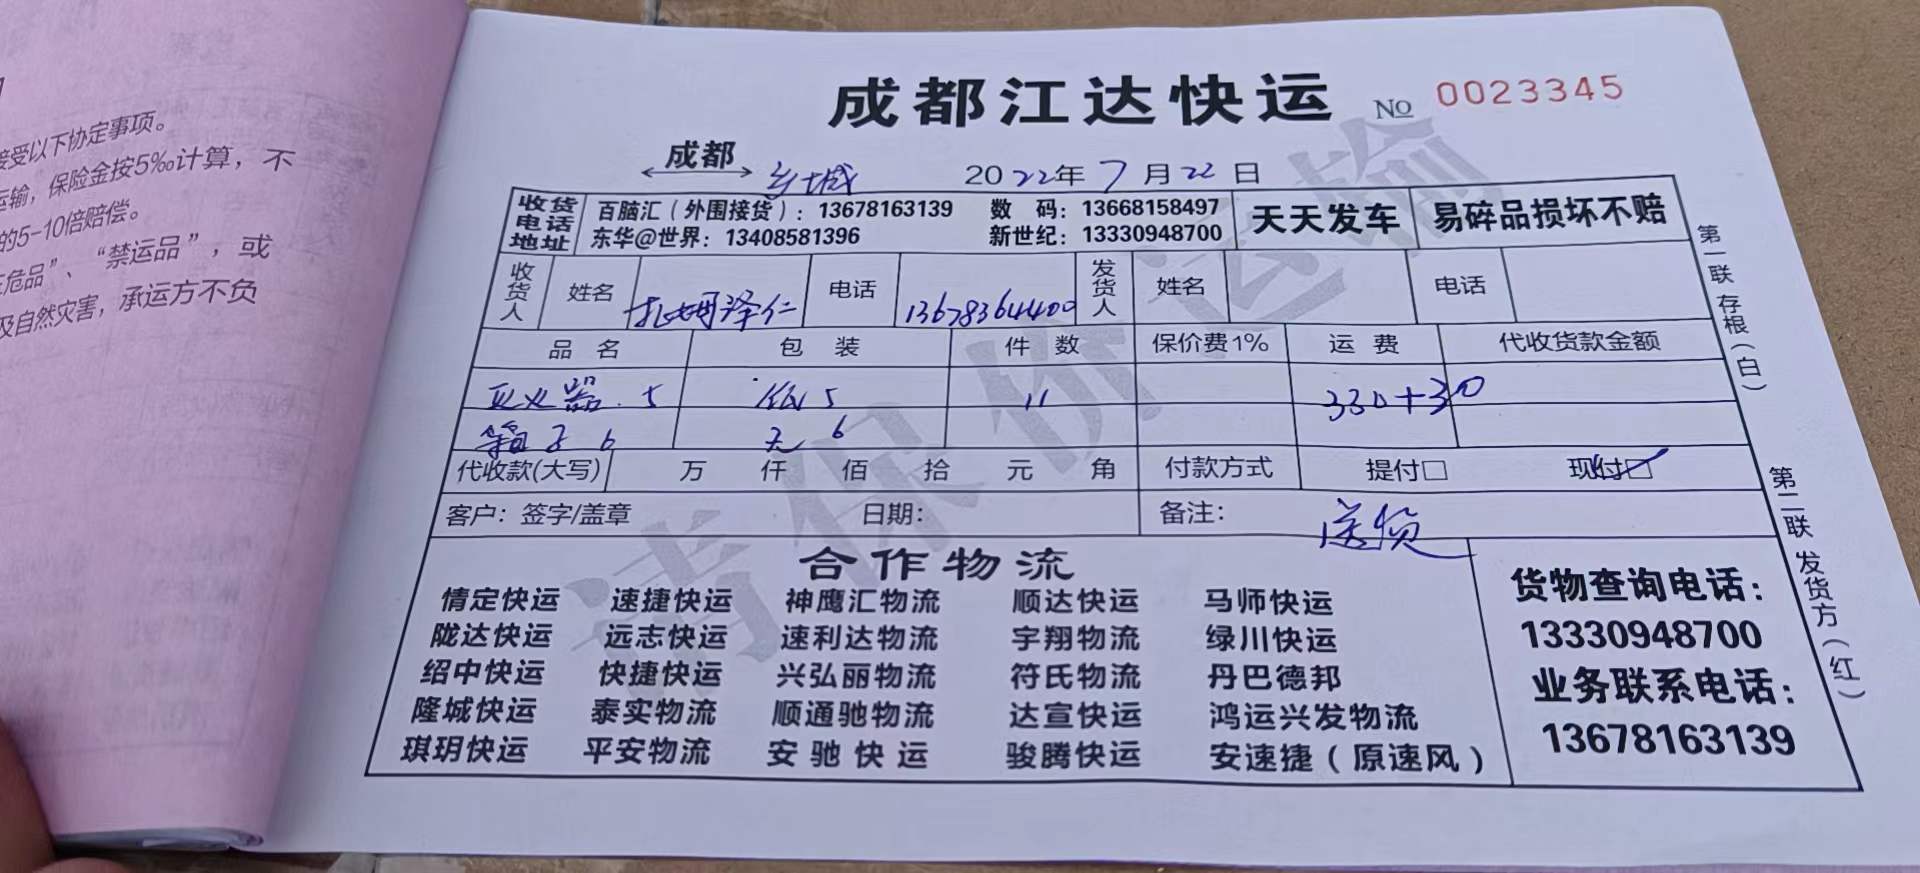 接受以下协定事项。
运输，保险金按5‰计算，不
的5-10倍赔偿。
危品”、“禁运品”，或
及自然灾害，承运方不负
成都江达快运 № 0023345
成都 乡城 2022年7月22日
收货电话地址 百脑汇（外围接货）：13678163139 数 码：13668158497 天天发车 易碎品损坏不赔
东华@世界：13408581396 新世纪：13330948700
收货人 姓名 扎姆泽仁 电话 13678364400 发货人 姓名 电话
品 名 包 装 件 数 保价费1% 运 费 代收货款金额
灭火器.5 纸5 11 330+30
箱子6 无6
代收款(大写) 万 仟 佰 拾 元 角 付款方式 提付□ 现付□
客户：签字/盖章 日期： 备注： 送货
合作物流
情定快运 速捷快运 神鹰汇物流 顺达快运 马师快运
陇达快运 远志快运 速利达物流 宇翔物流 绿川快运
绍中快运 快捷快运 兴弘丽物流 符氏物流 丹巴德邦
隆城快运 泰实物流 顺通驰物流 达宣快运 鸿运兴发物流
琪玥快运 平安物流 安驰快运 骏腾快运 安速捷（原速风）
货物查询电话：
13330948700
业务联系电话：
13678163139
第一联 存根（白）
第二联 发货方（红）
请保价运输